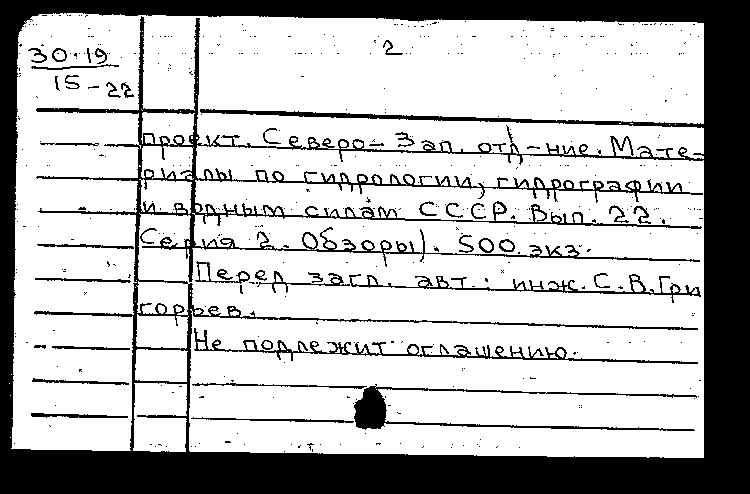 30.19
15-22
2
проект. Северо-Зап. отд-ние. Мате-
риалы по гидрологии, гидрографии
и водным силам СССР. Вып. 22.
Серия 2. Обзоры). 500 экз.
Перед загл. авт.: инж. С.В.Гри
горьев.
Не подлежит оглашению.